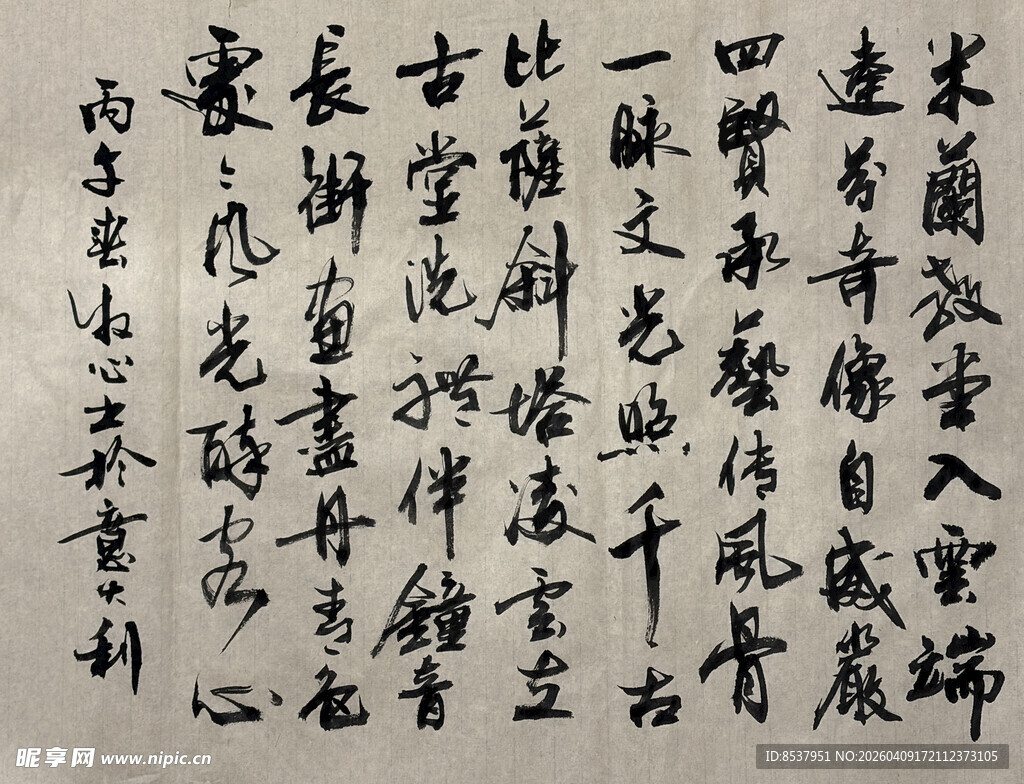 米蘭教堂入雲端
達芬奇像自威嚴
四賢承藝传風骨
一脉文光照千古
比薩斜塔凌雲立
古堂洗禮伴鐘音
長街畫盡丹青色
處〻風光醉客心
丙午春 心士於意大利
昵享网 www.nipic.cn
ID:8537951 NO:20260409172112373105